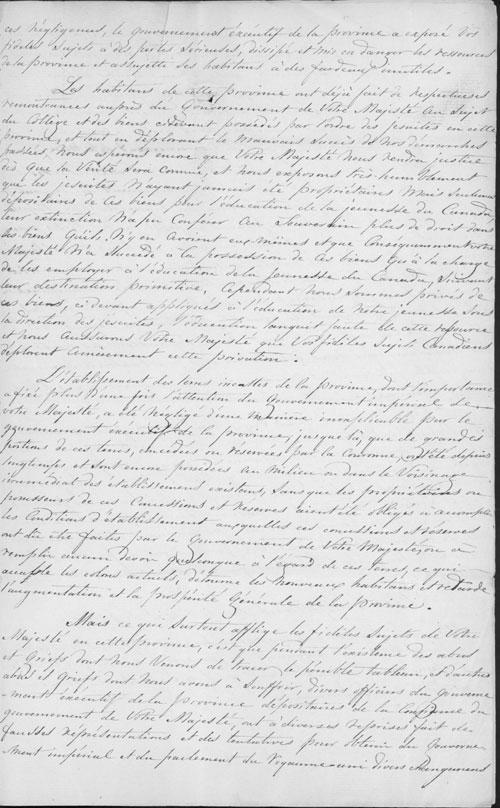 ces négligences, le gouvernement exécutif de la province a exposé vos
fideles Sujets à des pertes Sérieuses, dissipé et mis en danger les ressources
de la province et assujetti ses habitans à des fardeaux inutiles.
Les habitans de cette province ont déjà fait de respectueuses
remontrances auprès du Gouvernement de Votre Majesté au Sujet
du Collége et des biens ci devant possédés par l'ordre des jesuites en cette
province, et tout en déplorant le Mauvais Succès de Nos demarches
passées, Nous espérons encore que Votre Majesté Nous rendra justice
dès que la Vérité Sera connue, et Nous exposons très humblement
que les jesuites N'ayant jamais été propriétaires Mais Seulement
dépositaires de Ces biens pour l'éducation de la jeunesse du Canada,
leur extinction N'a pu Conférer au Souverain plus de droit dans
les biens qu'ils N'y en avoient eux mêmes et que Consequemment votre
Majesté N'a Succédé à la possession de Ces biens qu'à la charge
de les employer à l'éducation de la Jeunesse du Canada, Suivant
leur destination primitive, Cependant Nous Sommes privés de
ces biens, ci devant appliqués à l'éducation de Notre jeunesse Sous
la direction des jesuites, l'éducation languit faute de cette ressource
et Nous assurons Votre Majesté que Vos fidèles Sujets Canadiens
déplorent amèrement cette privation.
L'établissement des terres incultes de la province, dont l'importance
a fixé plus d'une fois l'attention du Gouvernement impérial de
votre Majesté, a été Négligé d'une Manière inexplicable par le
gouvernement exécutif de la province, jusque là, que de grandes
portions de ces terres, concédées ou reservées par la Couronne, ont été depuis
longtemps et Sont encore possédées au Milieu ou dans le Voisinage
immédiat des établissemens existans, Sans que les propriétaires ou
possesseurs de ces Concessions et Reserves aient été obligés d'accomplir
les Conditions d'établissement auxquelles ces concessions et réserves
ont dû être faites par le gouvernement de Votre Majesté, on a
remplir aucun devoir quelconque à l'égard de ces terres, ce qui
accable les colons actuels, détourne les Nouveaux habitans et retarde
l'augmentation et la prospérité Générale de la province.
Mais ce qui Surtout afflige les fidèles Sujets de Votre
Majesté en cette province, c'est que pendant l'existence des abus
et Griefs dont Nous Venons de tracer le pénible tableau, et d'autres
abus et Griefs dont Nous avons à Souffrir, divers officiers du gouverne
ment exécutif de la province dépositaires de la Confiance du
gouvernement de Votre Majesté, ont à diverses reprises fait de
fausses représentations et des tentatives pour obtenir du Gouverne
ment impérial et du parlement du Royaume-uni divers Changemens